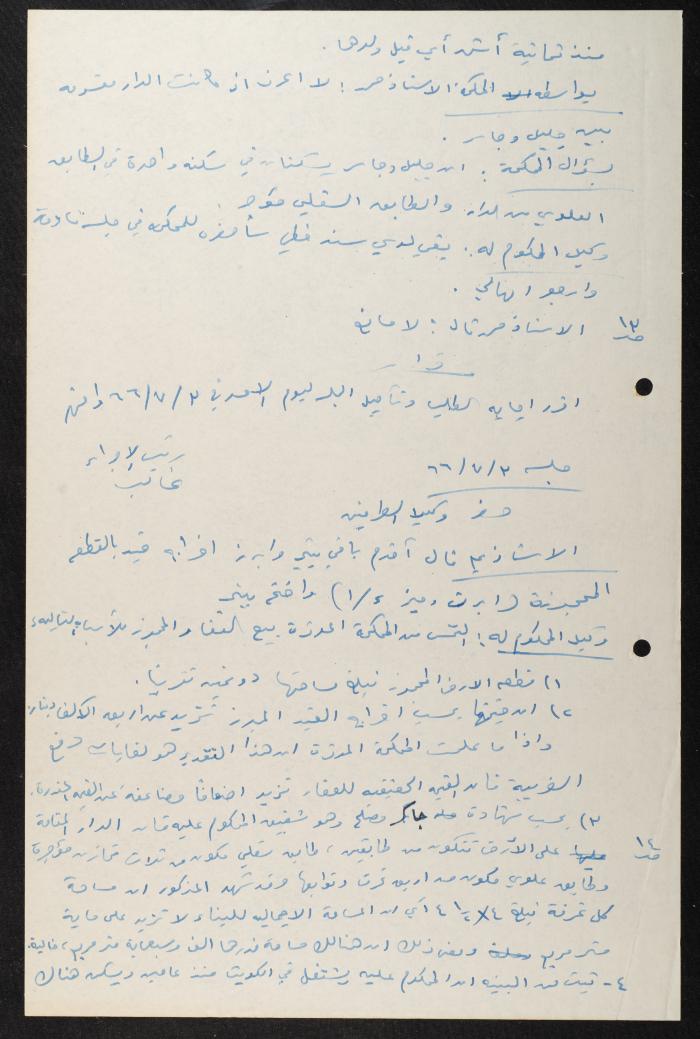 منذ ثمانية أشهر أي قبل ولدها .
بواسطة المحكمة الاستاذ حمد : لا اعرف اذا كانت الدار مقسومة
بين جليل وجابر .
بسؤال المحكمة : ان جليل وجابر يسكنان في سكنه واحدة في الطابق
العلوي من الدار والطابق السفلي مؤجر .
وكيل المحكوم له : بقي لدي سند خطي سأحضره للمحكمة في جلسة قادمة
وارجو امهالي .
١٣
الاستاذ حمد قال : لا مانع
قرار
اقرر اجابة الطلب وتأجيل البلد ليوم الاحد في ٣ / ٧ / ٦٦ وافهم
رئيس الاجراء
جلسة ٣ / ٧ / ٦٦
حضر وكيلا الطرفين
الاستاذ قال أقدم باقي بينتي وابرز اخراج قيد بالقطعة
المحجوزة ( ابرزت وميز ع / ١ ) واختم بينتي
وكيل المحكوم له : التمس من المحكمة الموقرة بيع العقار المحجوز للأسباب التالية :
١) قطعة الارض المحجوز تبلغ مساحتها دونمين تقريبا .
٢) ان قيمتها بحسب اخراج القيد المبرز تزيد عن اربعة الاف دينار
واذا ما علمت المحكمة الموقرة ان هذا التقدير هو لغايات دفع
الضريبة فان القيمة الحقيقية للعقار تزيد اضعافا مضاعفة عن القيمة المقدرة .
٣) بحسب شهادة جابر مصلح وهو شقيق المحكوم عليه فان الدار المقامة
١٤
على الأرض تتكون من طابقين ، طابق سفلي مكون من ثلاث مخازن مؤجرة
وطابق علوي مكون من اربع غرف وتوابعها وقد شهد المذكور ان مساحة
كل غرفة تبلغ ٤ × ٤ ١/٢ أي ان المساحة الاجمالية للبناء لا تزيد على ماية
متر مربع ومعنى ذلك ان هنالك مساحة قدرها الف وسبعماية متر مربع خالية .
٤ - ثبت من البينة ان المحكوم عليه يشتغل في الكويت منذ عامين ويسكن هناك